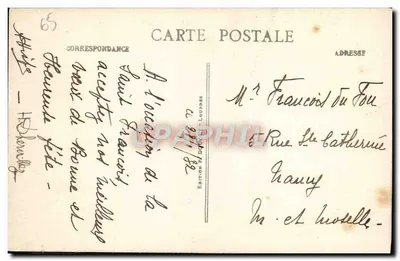 65
CARTE POSTALE
CORRESPONDANCE
ADRESSE
A l'occasion de la
Saint François,
acceptez nos meilleurs
vœux de Bonne et
Heureuse fête -
Mr François du Fou
5 Rue Ste Catherine
Nancy
M. et Moselle -